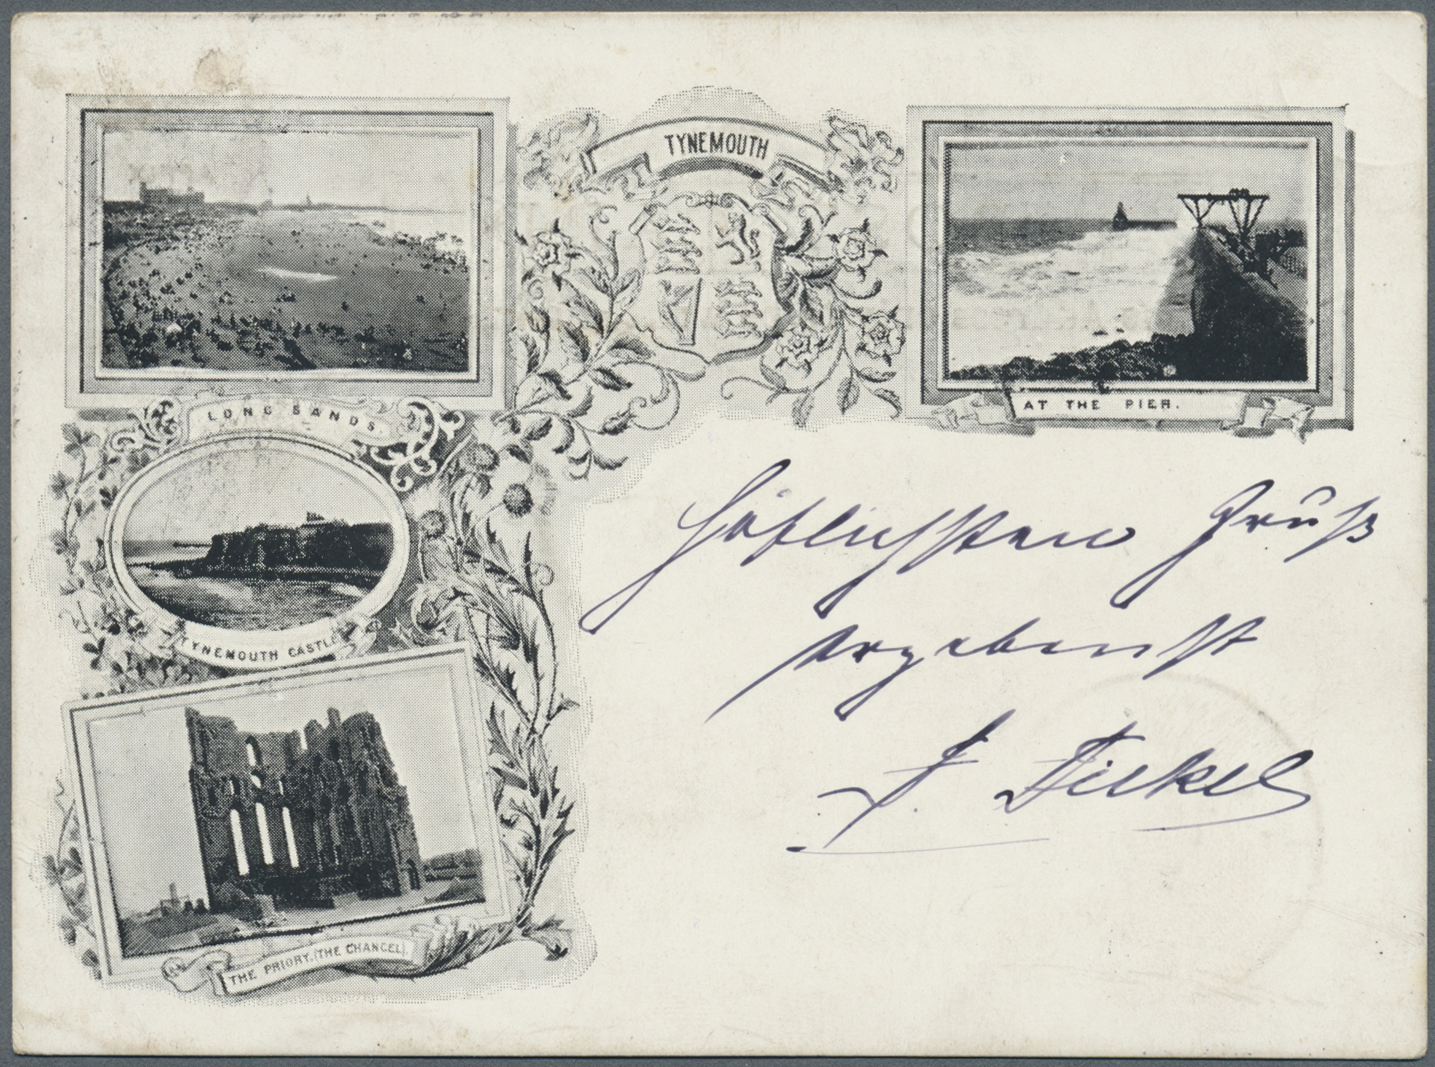 TYNEMOUTH
LONG SANDS.
AT THE PIER.
TYNEMOUTH CASTLE
THE PRIORY. (THE CHANCEL).
Höflichsten Gruß
ergebenst
F. Dickel